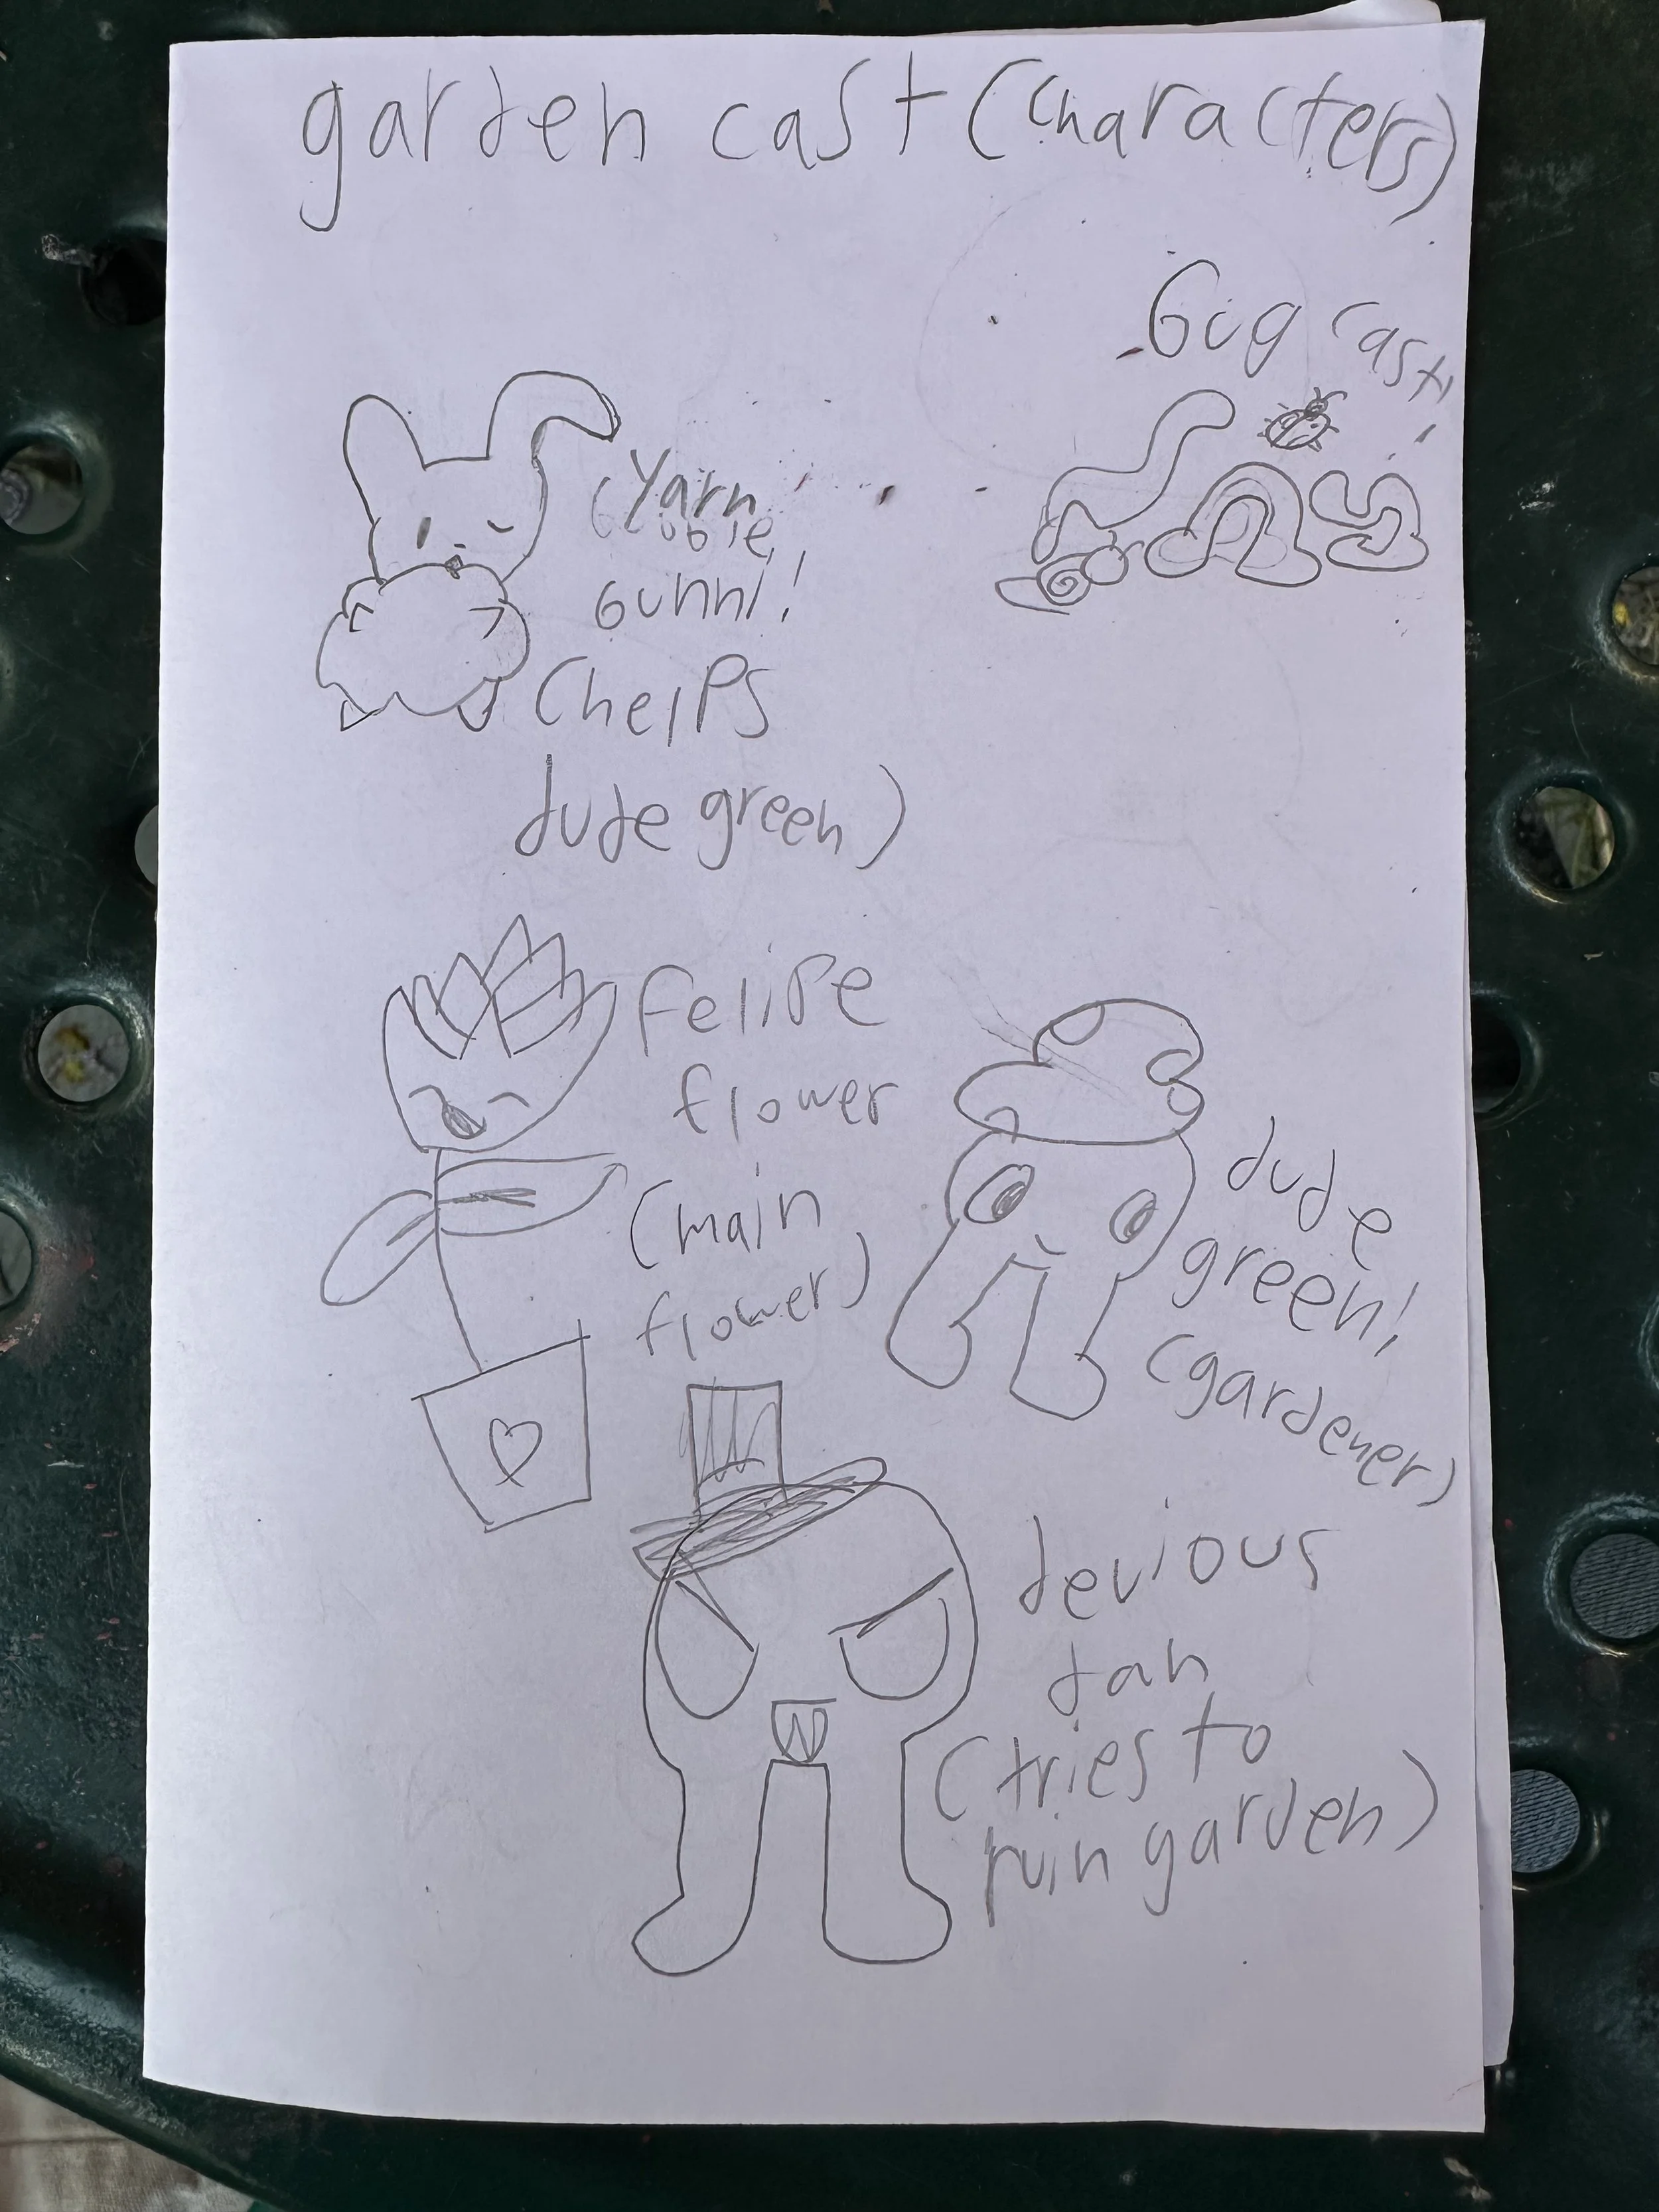 garden cast (characters)
Gug cast!
(Yarn
bunni!
(helps
dude green)
felipe
flower
(main
flower)
dude
green!
(gardener)
devious
dan
(tries to
ruin garden)